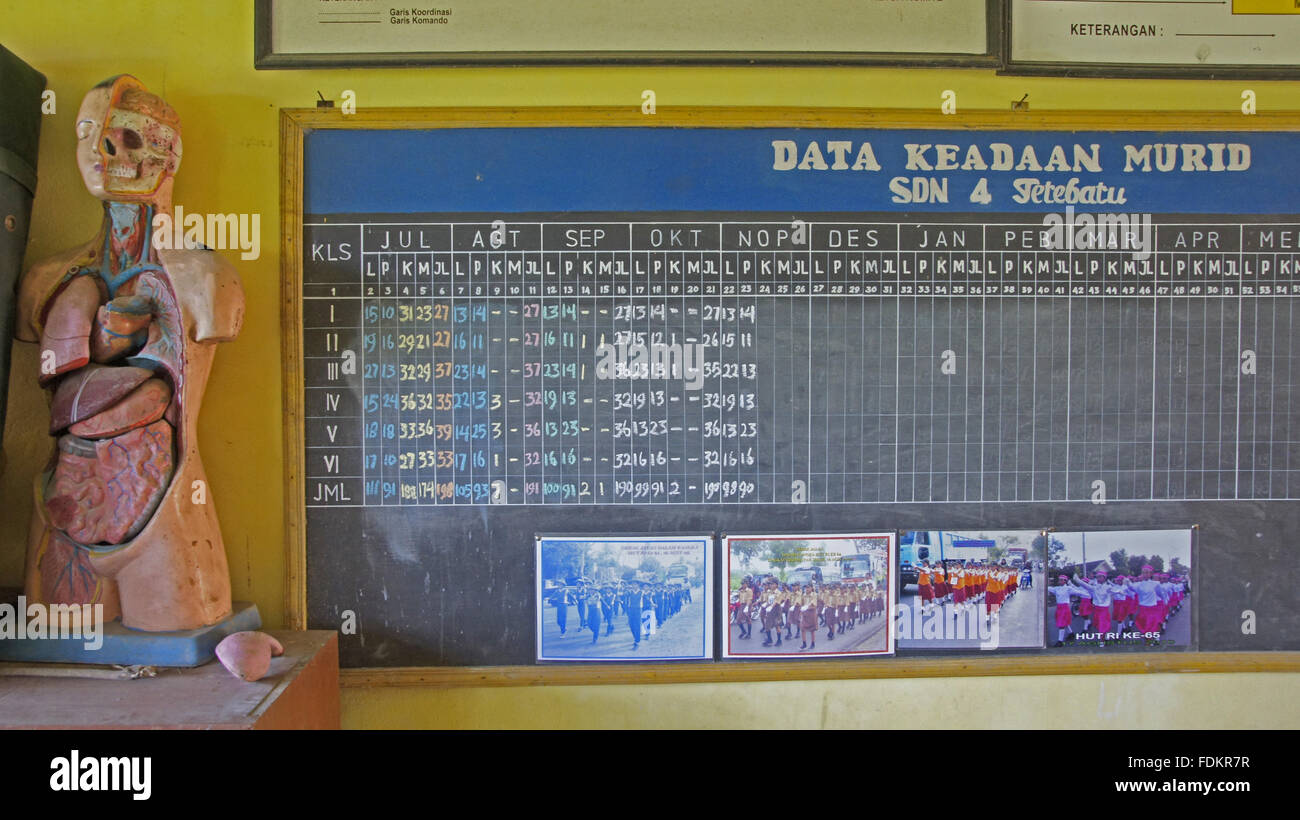 Garis Koordinasi
Garis Komando
KETERANGAN :
DATA KEADAAN MURID
SDN 4 Tetebatu
KLS JUL AGT SEP OKT NOP DES JAN PEB MAR APR
L P K M JL L P K M JL L P K M JL L P K M JL L P K M JL L P K M JL L P K M JL L P K M JL L P K M JL L P K M JL L P K
1 2 3 4 5 6 7 8 9 10 11 12 13 14 15 16 17 18 19 20 21 22 23 24 25 26 27 28 29 30 31 32 33 34 35 36 37 38 39 40 41 42 43 44 45 46 47 48 49 50 51 52 53 54
I 15 10 31 23 27 13 14 - - 27 13 14 - - 27 13 14 - - 27 13 14
II 19 16 29 21 27 16 11 - - 27 16 11 1 1 27 15 12 1 - 26 15 11
III 27 13 32 29 37 23 14 - - 37 23 14 1 - 36 23 13 1 - 35 22 13
IV 15 24 36 32 35 22 13 3 - 32 19 13 - - 32 19 13 - - 32 19 13
V 18 18 33 36 39 14 25 3 - 36 13 23 - - 36 13 23 - - 36 13 23
VI 17 10 27 33 33 17 16 1 - 32 16 16 - - 32 16 16 - - 32 16 16
JML 111 91 174 198 105 93 7 - 191 100 91 2 1 190 99 91 2 - 98 90
HUT RI KE-65
alamy
Image ID: FDKR7R
www.alamy.com